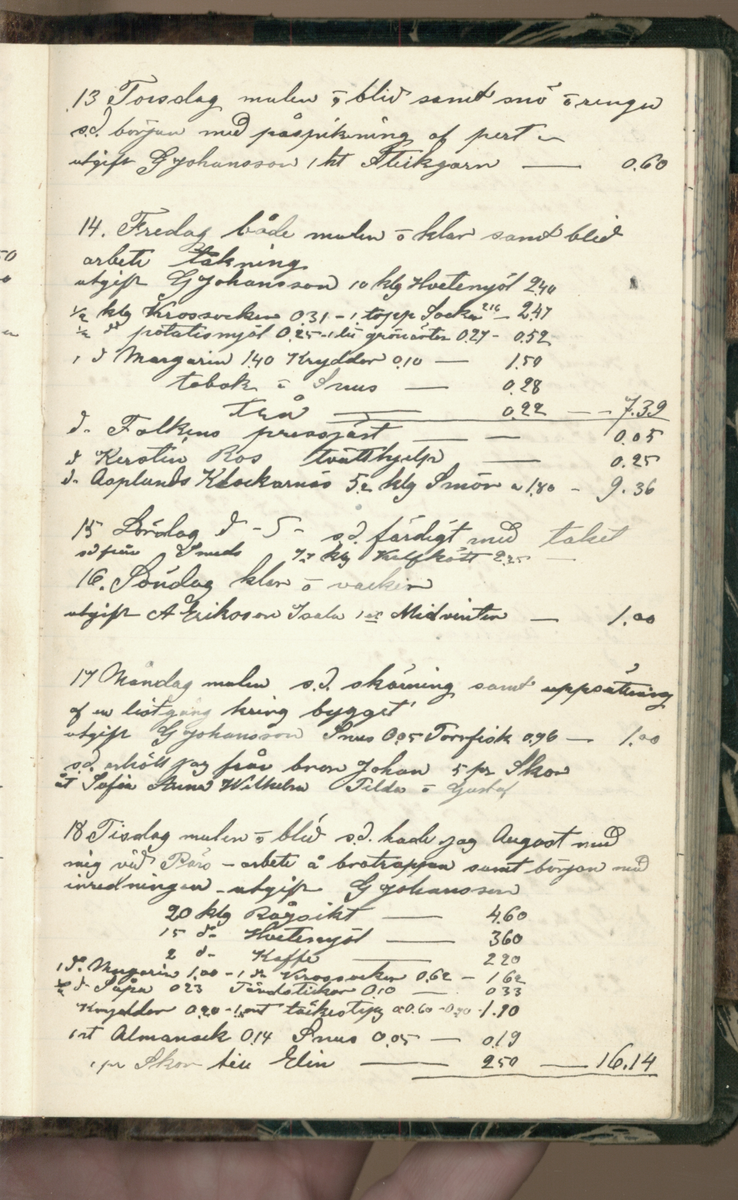 13 Torsdag mulen o blid samt snö o rengn
s.d. början med påspikning af pert
utgift G Johansson 1 kt Stickgarn — 0.60
14. Fredag både mulen o klar samt blid
arbete täkning
utgift G Johansson 10 klg Hvetemjöl 2.40
½ klg Krossocker 0.31 - 1 topp Socker 2.16 - 2.47
½ d potatismjöl 0.25 - 1 lit grönärter 0.27 - 0.52
1 d Margarin 1.40 Kryddor 0.10 — 1.50
tobak o Snus — 0.28
Trå — 0.22 — 7.39
d- Falkens pressjäst — 0.05
d Kerstin Ros tvätthjelp — 0.25
d- Asplunds Klockarnäs 5.2 klg Smör a 1.80 - 9.36
15 Lördag d - 5 - s.d. färdigt med taket
sd från Smeds 7.5 klg Kalfkött 2.25 —
16. Söndag klar o vacker
utgift A Erikson Isala 1 ex Midvinter — 1.00
17 Måndag mulen s.d. skårning samt uppsättning
af en listgång kring bygget
utgift G Johansson Snus 0.05 Torrfisk 0.96 — 1.00
s.d. erhölt jag från bror Johan 5 pr Skor
åt Sofia Anna Wilhelm Tilda o Gustaf
18 Tisdag mulen o blid s.d. hade jag August med
mig vid - arbete å brotrappan samt början med
inredningen - utgift G Johansson
20 klg Rågsikt — 4.60
15 d- Hvetemjöl — 3.60
2 d- Kaffe — 2.20
1 d- Margarin 1.00 - 1 d- Krossocker 0.62 - 1.62
½ d Såpa 0.23 Tändstickor 0.10 — 0.33
Kryddor 0.20 - 0.60 - 1.10
1 st Almanack 0.14 Snus 0.05 — 0.19
1 pr Skor till Elin — 2.50 — 16.14